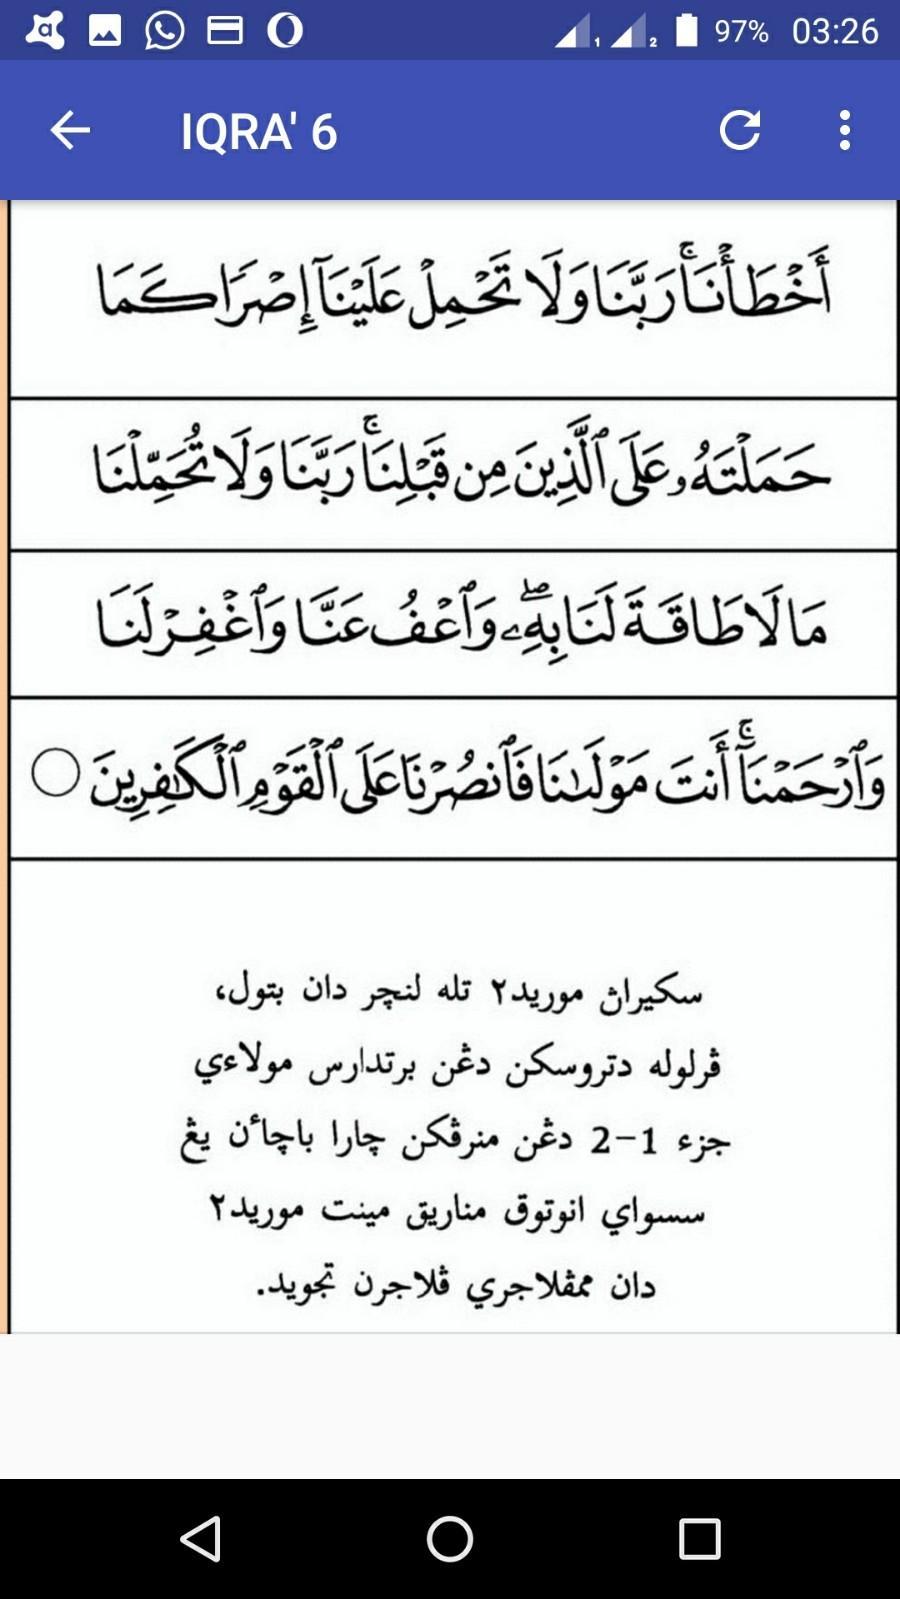 97% 03:26
IQRA' 6
أَخْطَأْنَاۚ رَبَّنَا وَلَا تَحْمِلْ عَلَيْنَآ إِصْرًا كَمَا
حَمَلْتَهُۥ عَلَى ٱلَّذِينَ مِن قَبْلِنَاۚ رَبَّنَا وَلَا تُحَمِّلْنَا
مَا لَا طَاقَةَ لَنَا بِهِۦۖ وَٱعْفُ عَنَّا وَٱغْفِرْ لَنَا
وَٱرْحَمْنَآۚ أَنتَ مَوْلَىٰنَا فَٱنصُرْنَا عَلَى ٱلْقَوْمِ ٱلْكَٰفِرِينَ
سكيراڽ موريد٢ تله لنچر دان بتول،
ڤرلوله دتروسكن دڠن برتدارس مولاءي
جزء 1-2 دڠن منرڤكن چارا باچاٴن يڠ
سسواي انوتوق مناريق مينت موريد٢
دان ممڤلاجري ڤلاجرن تجويد.